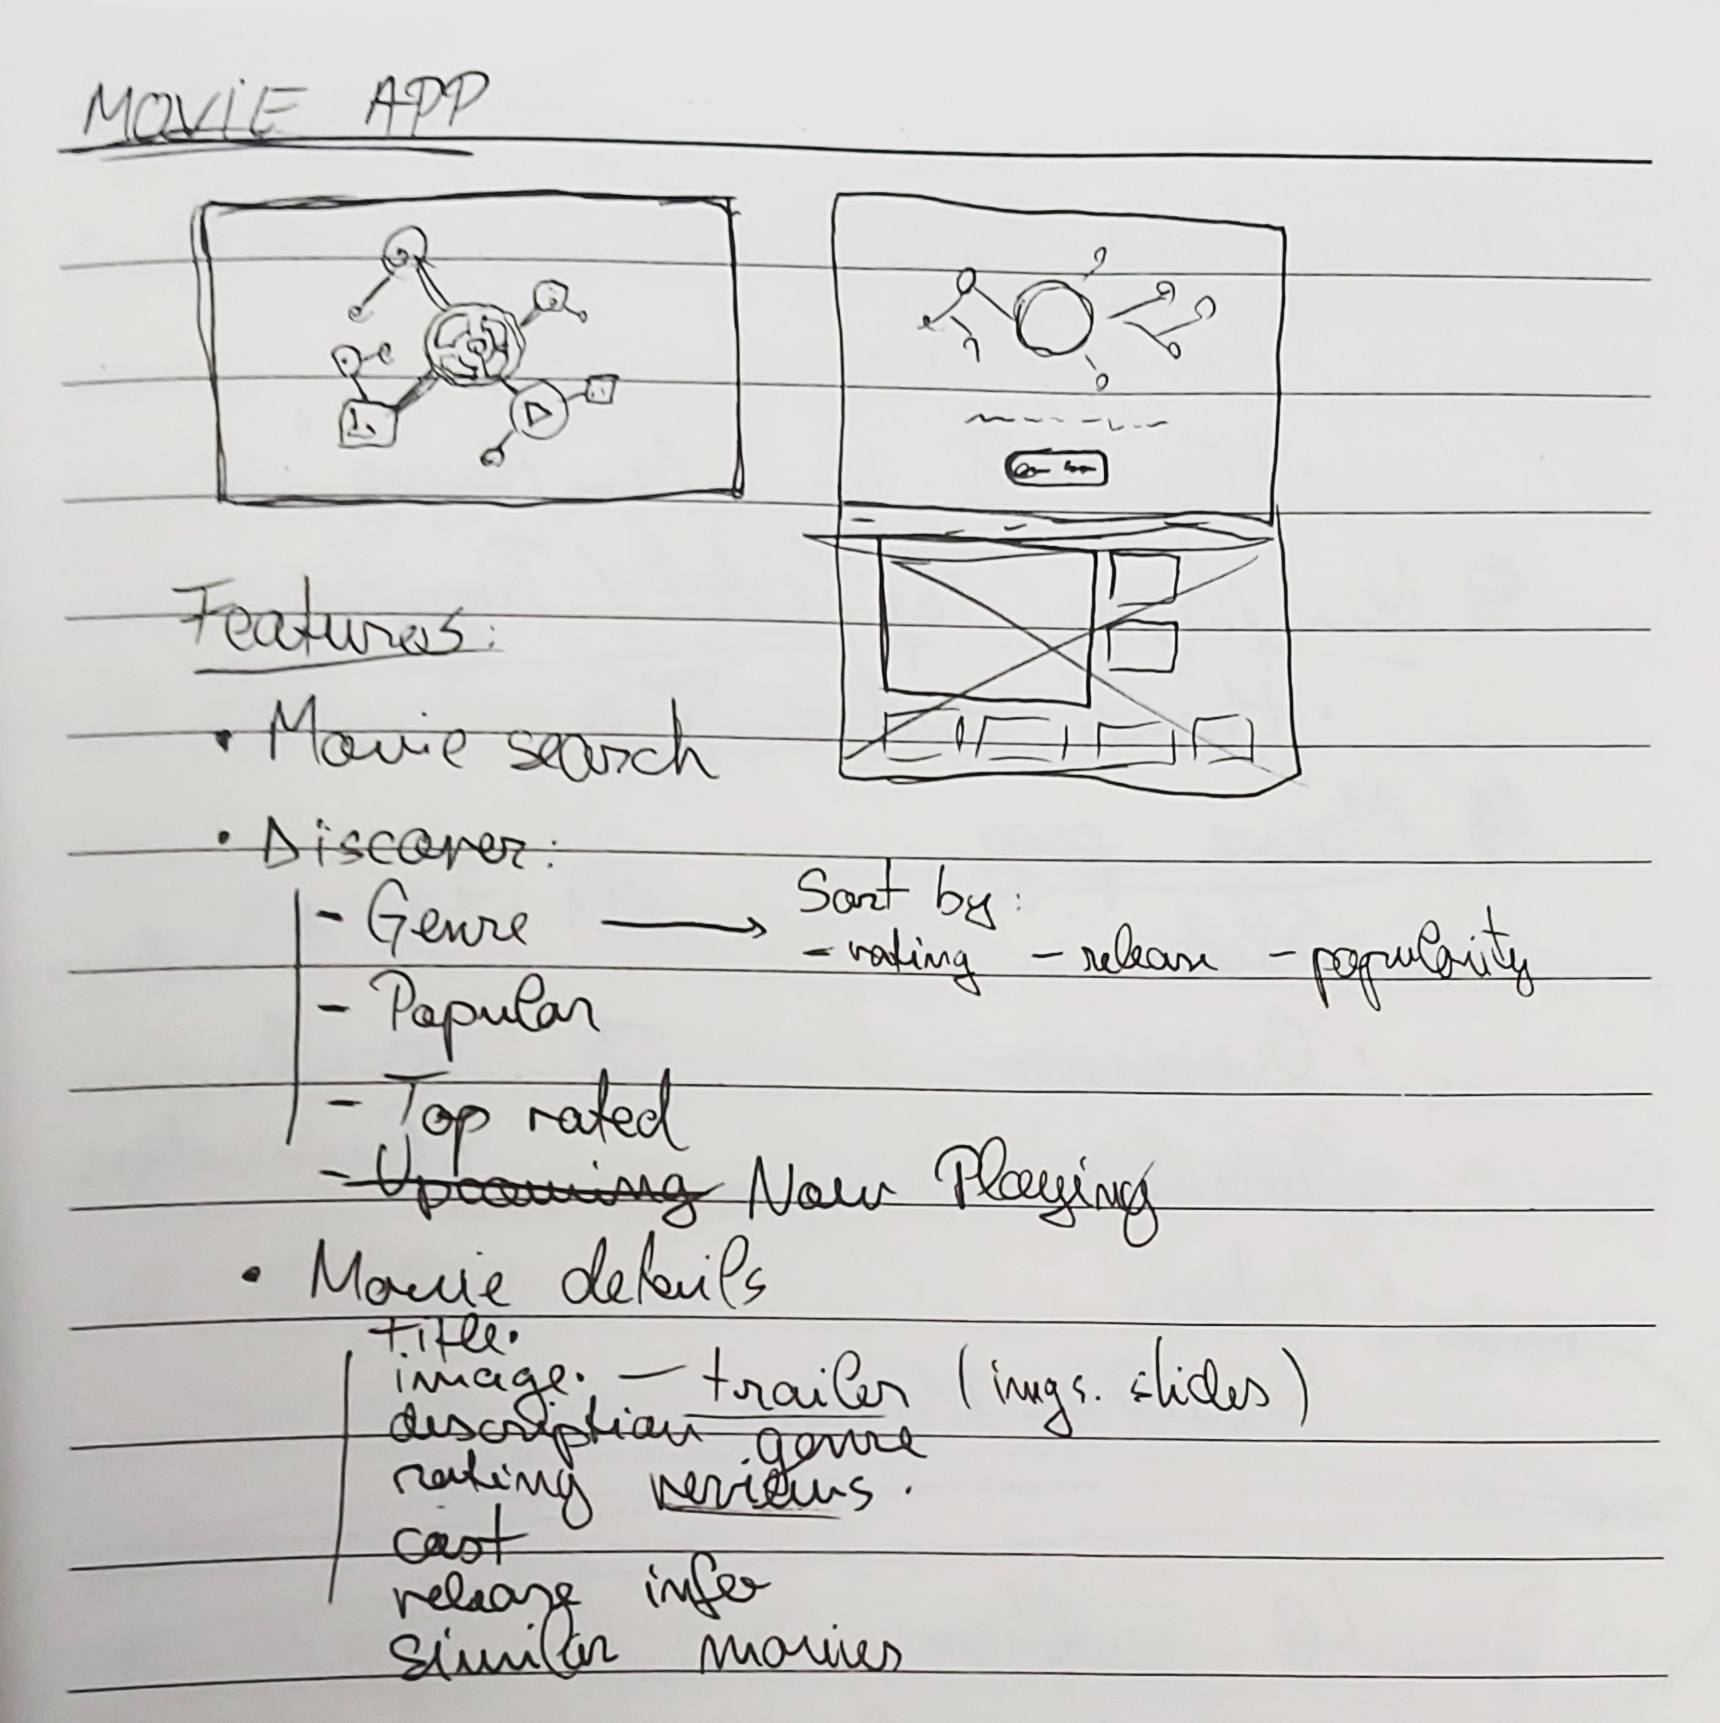 MOVIE APP
Features:
• Movie search
• Discover:
- Genre → Sort by:
- rating - release - popularity
- Popular
- Top rated
- Upcoming Now Playing
• Movie details
title.
image. - trailer (imgs. slides)
description genre
rating reviews.
cast
release info
similar movies